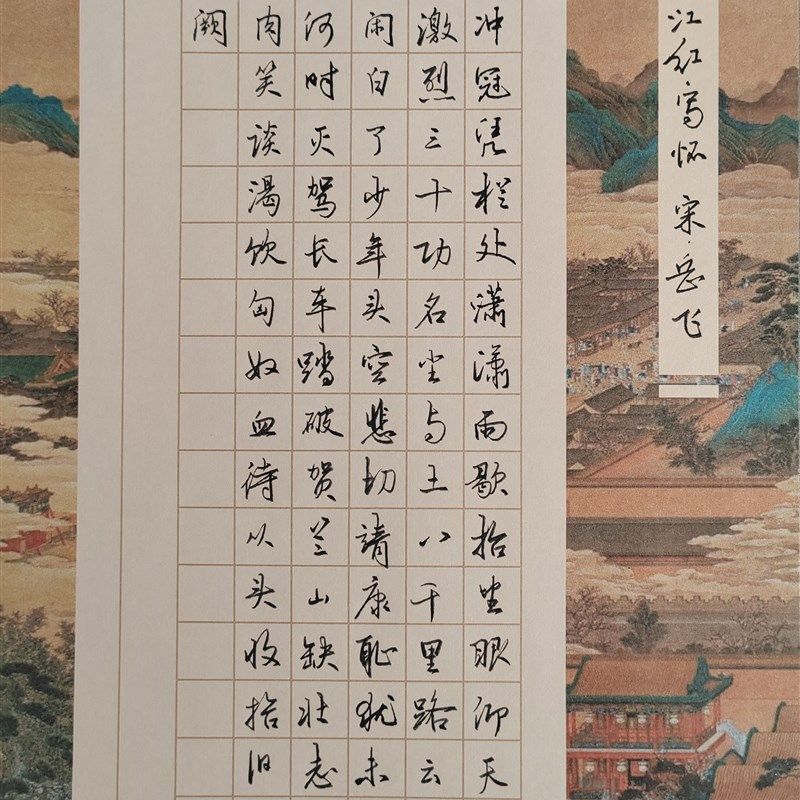 江红写怀 宋·岳飞
冲冠凭栏处潇潇雨歇抬望眼仰天
激烈三十功名尘与土八千里路云
闲白了少年头空悲切靖康耻犹未
何时灭驾长车踏破贺兰山缺壮志
肉笑谈渴饮匈奴血待从头收拾旧
阙